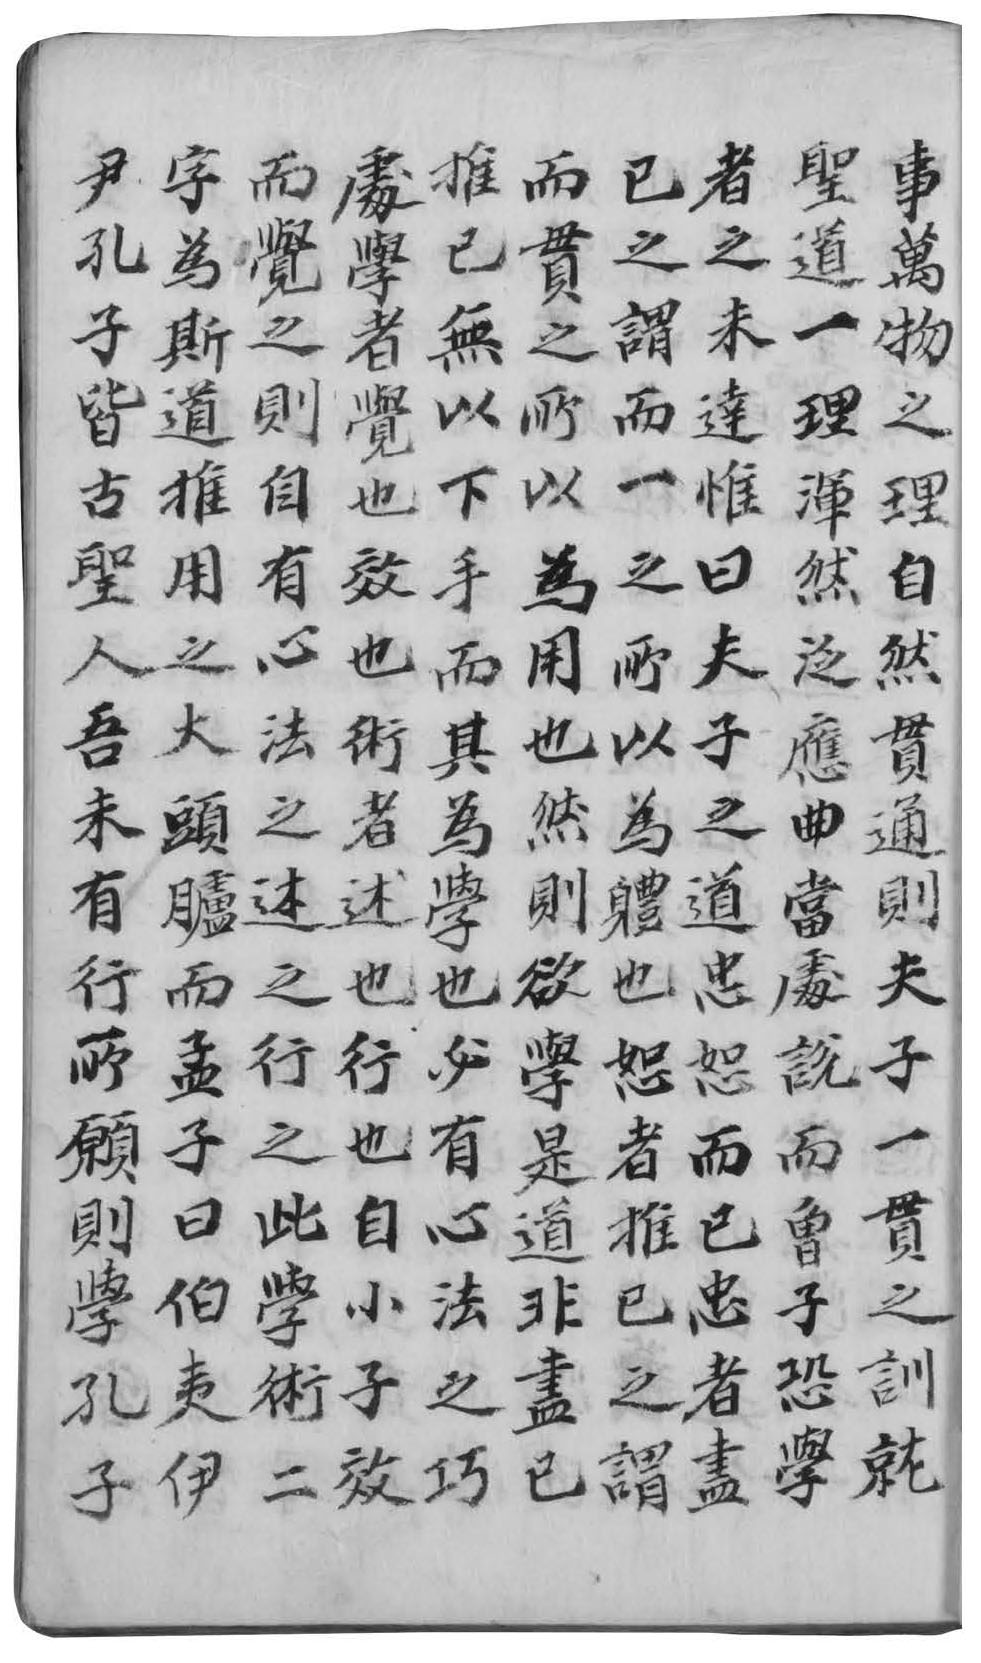 事萬物之理自然貫通則夫子一貫之訓就
聖道一理渾然泛應曲當處說而曾子恐學
者之未達惟曰夫子之道忠恕而已忠者盡
已之謂而一之所以為軆也恕者推已之謂
而貫之所以為用也然則欲學是道非盡已
推已無以下手而其為學也必有心法之巧
處學者覺也效也術者述也行也自小子效
而覺之則自有心法之述之行之此學術二
字為斯道推用之大頭臚而孟子曰伯夷伊
尹孔子皆古聖人吾未有行所願則學孔子